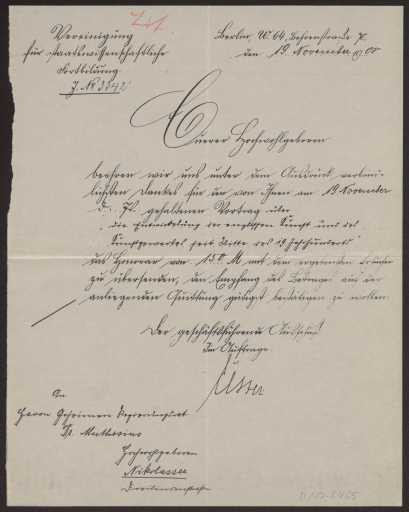 Vereinigung
für staatswissenschaftliche
Fortbildung.
J. No 3842
Berlin W 64, Behrenstraße
den 19. November
Euerer Hochwohlgeboren
beehren wir uns unter dem Ausdruck verbind-
lichsten Dankes für den von Ihnen am 19. November
d. Js. gehaltenen Vortrag über
"die Entwickelung der englischen Kunst und des
Kunstgewerbes seit Mitte des 19. Jahrhunderts"
das Honorar von 150 M mit dem ergebenen Ersuchen
zu übersenden, den Empfang des Betrages auf der
anliegenden Quittung gütigst bestätigen zu wollen.
Der geschäftsführende Ausschuß
Im Auftrage
An
Herrn Geheimen Regierungsrat
Dr. Muthesius
Hochwohlgeboren
Nikolassee